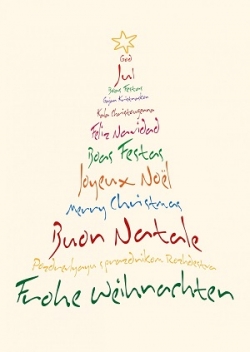 God
Jul
Boas Festas
Kala Christouyenna
Feliz Navidad
Boas Festas
Joyeux Noël
Merry Christmas
Buon Natale
Frohe Weihnachten